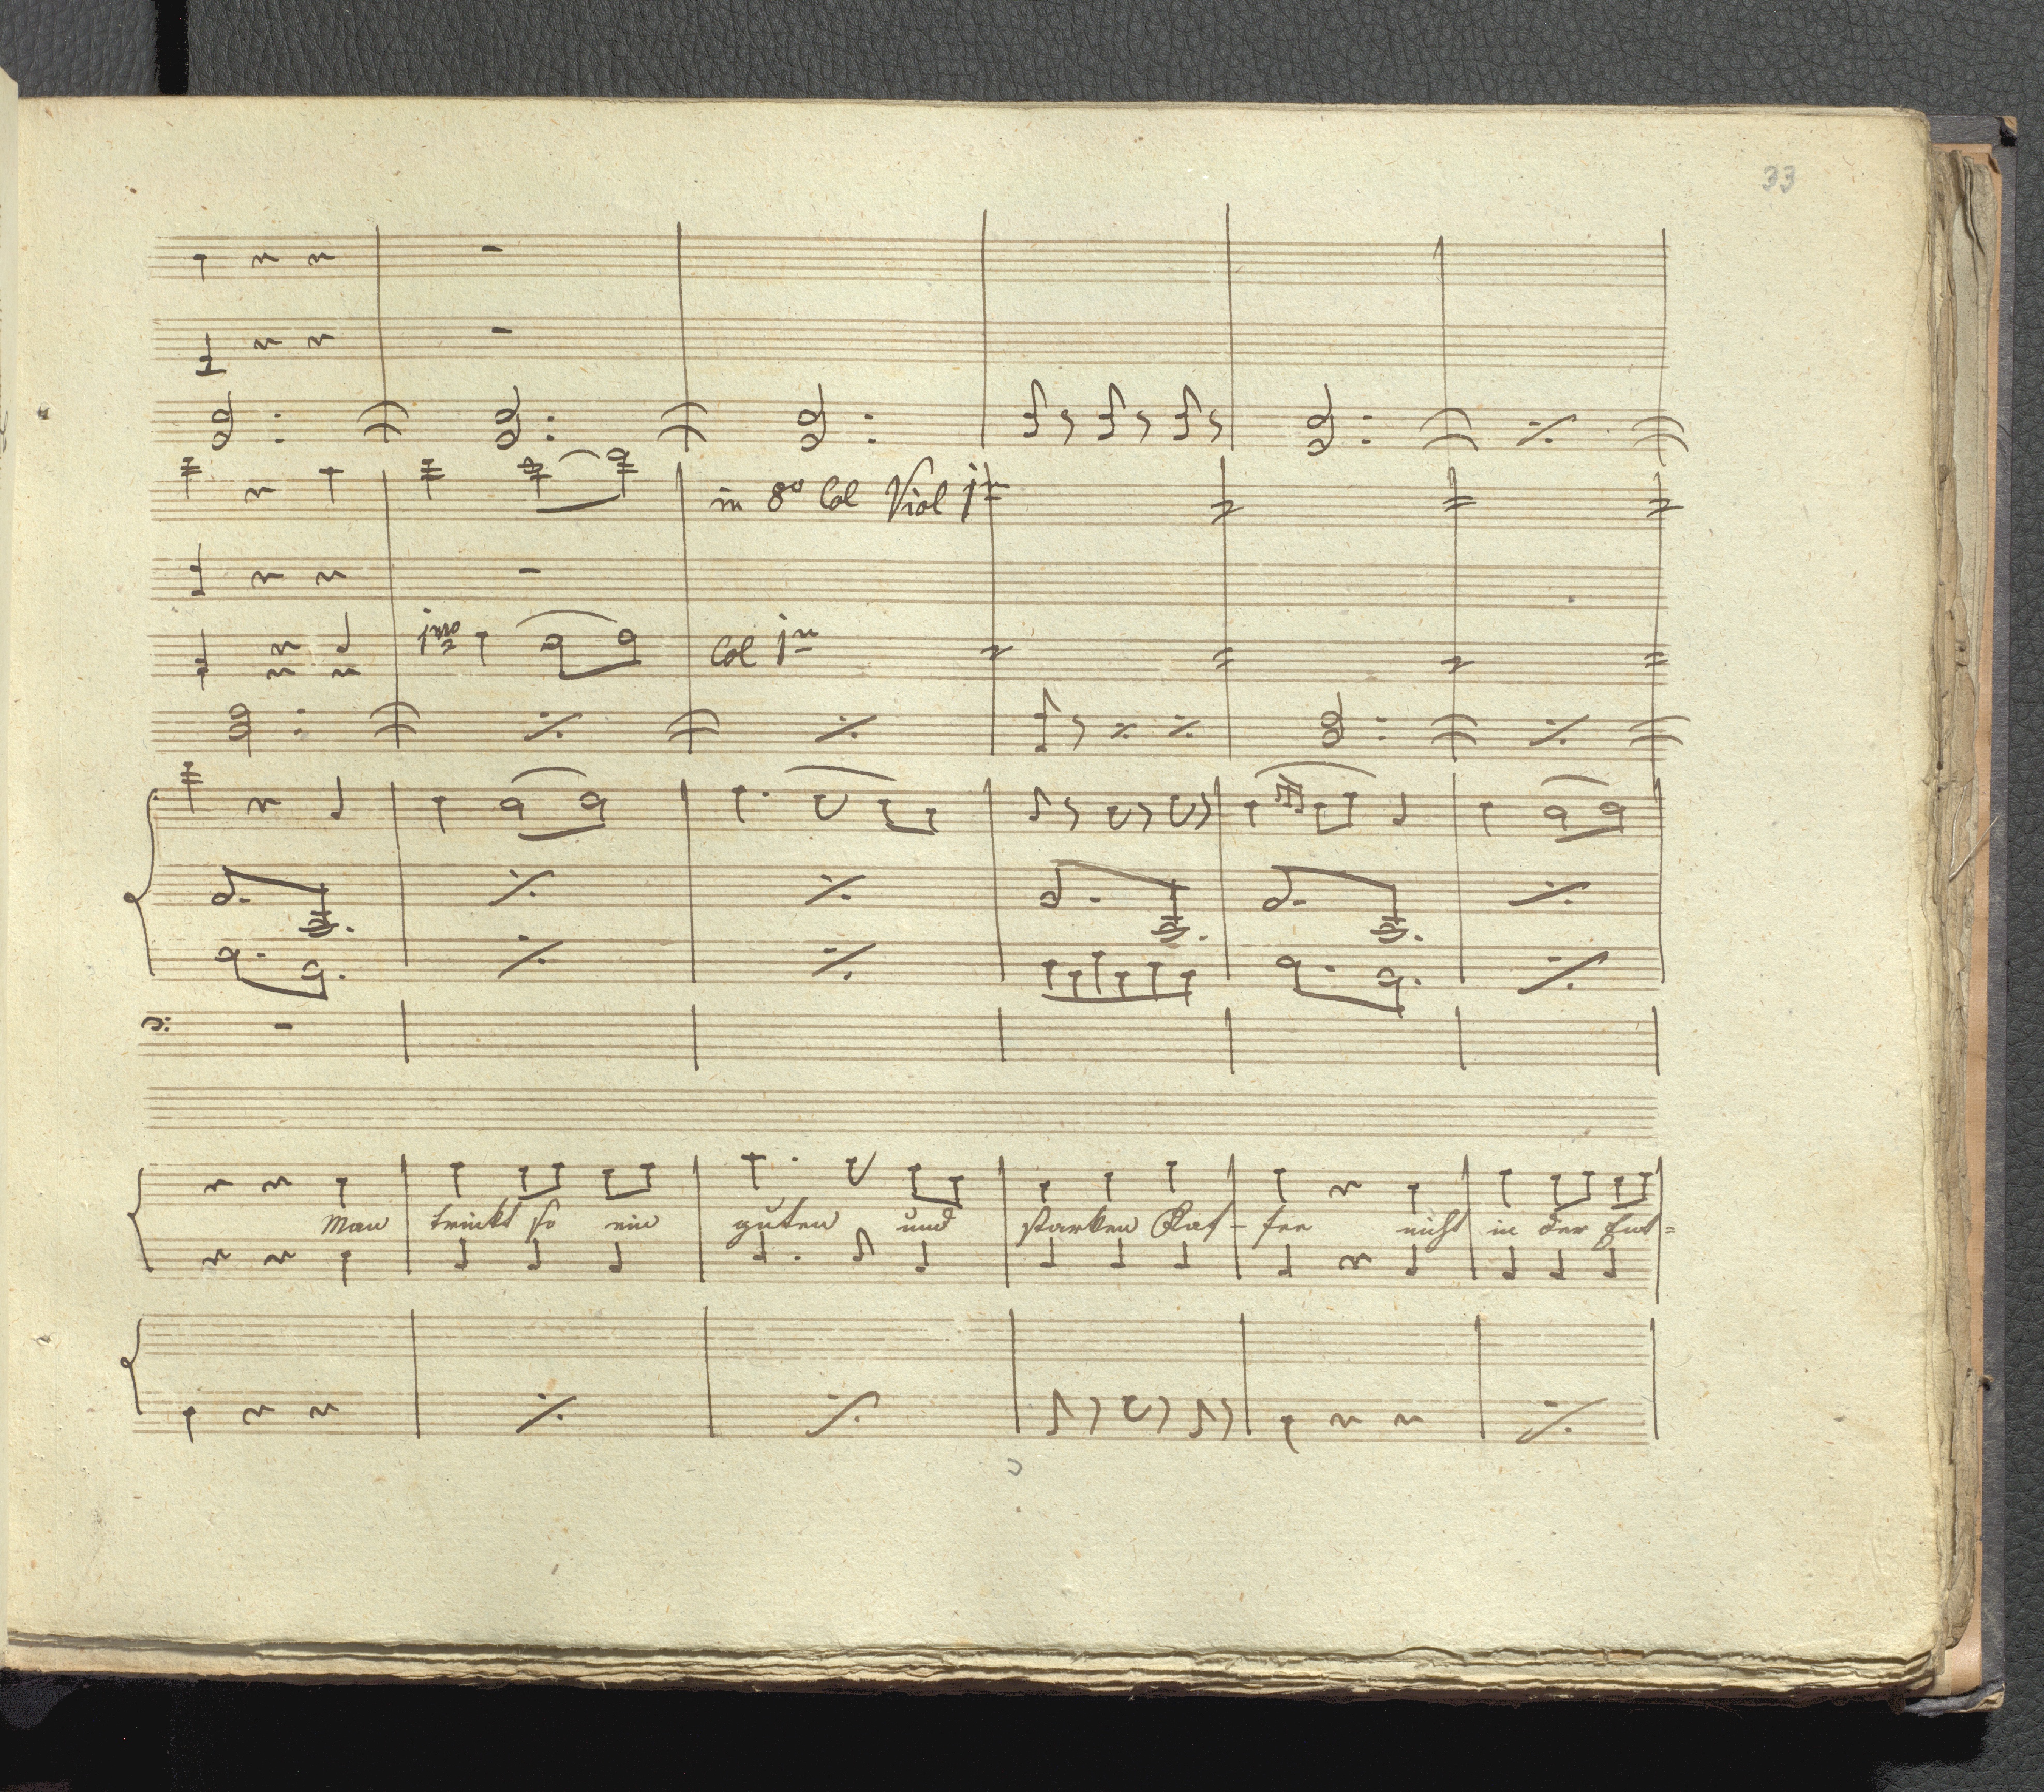 33
in 8º Col Viol 1mo
1mo
Col 1mo
Man trinkt so ein guten und starken Kaf- fee nicht in der Ent=